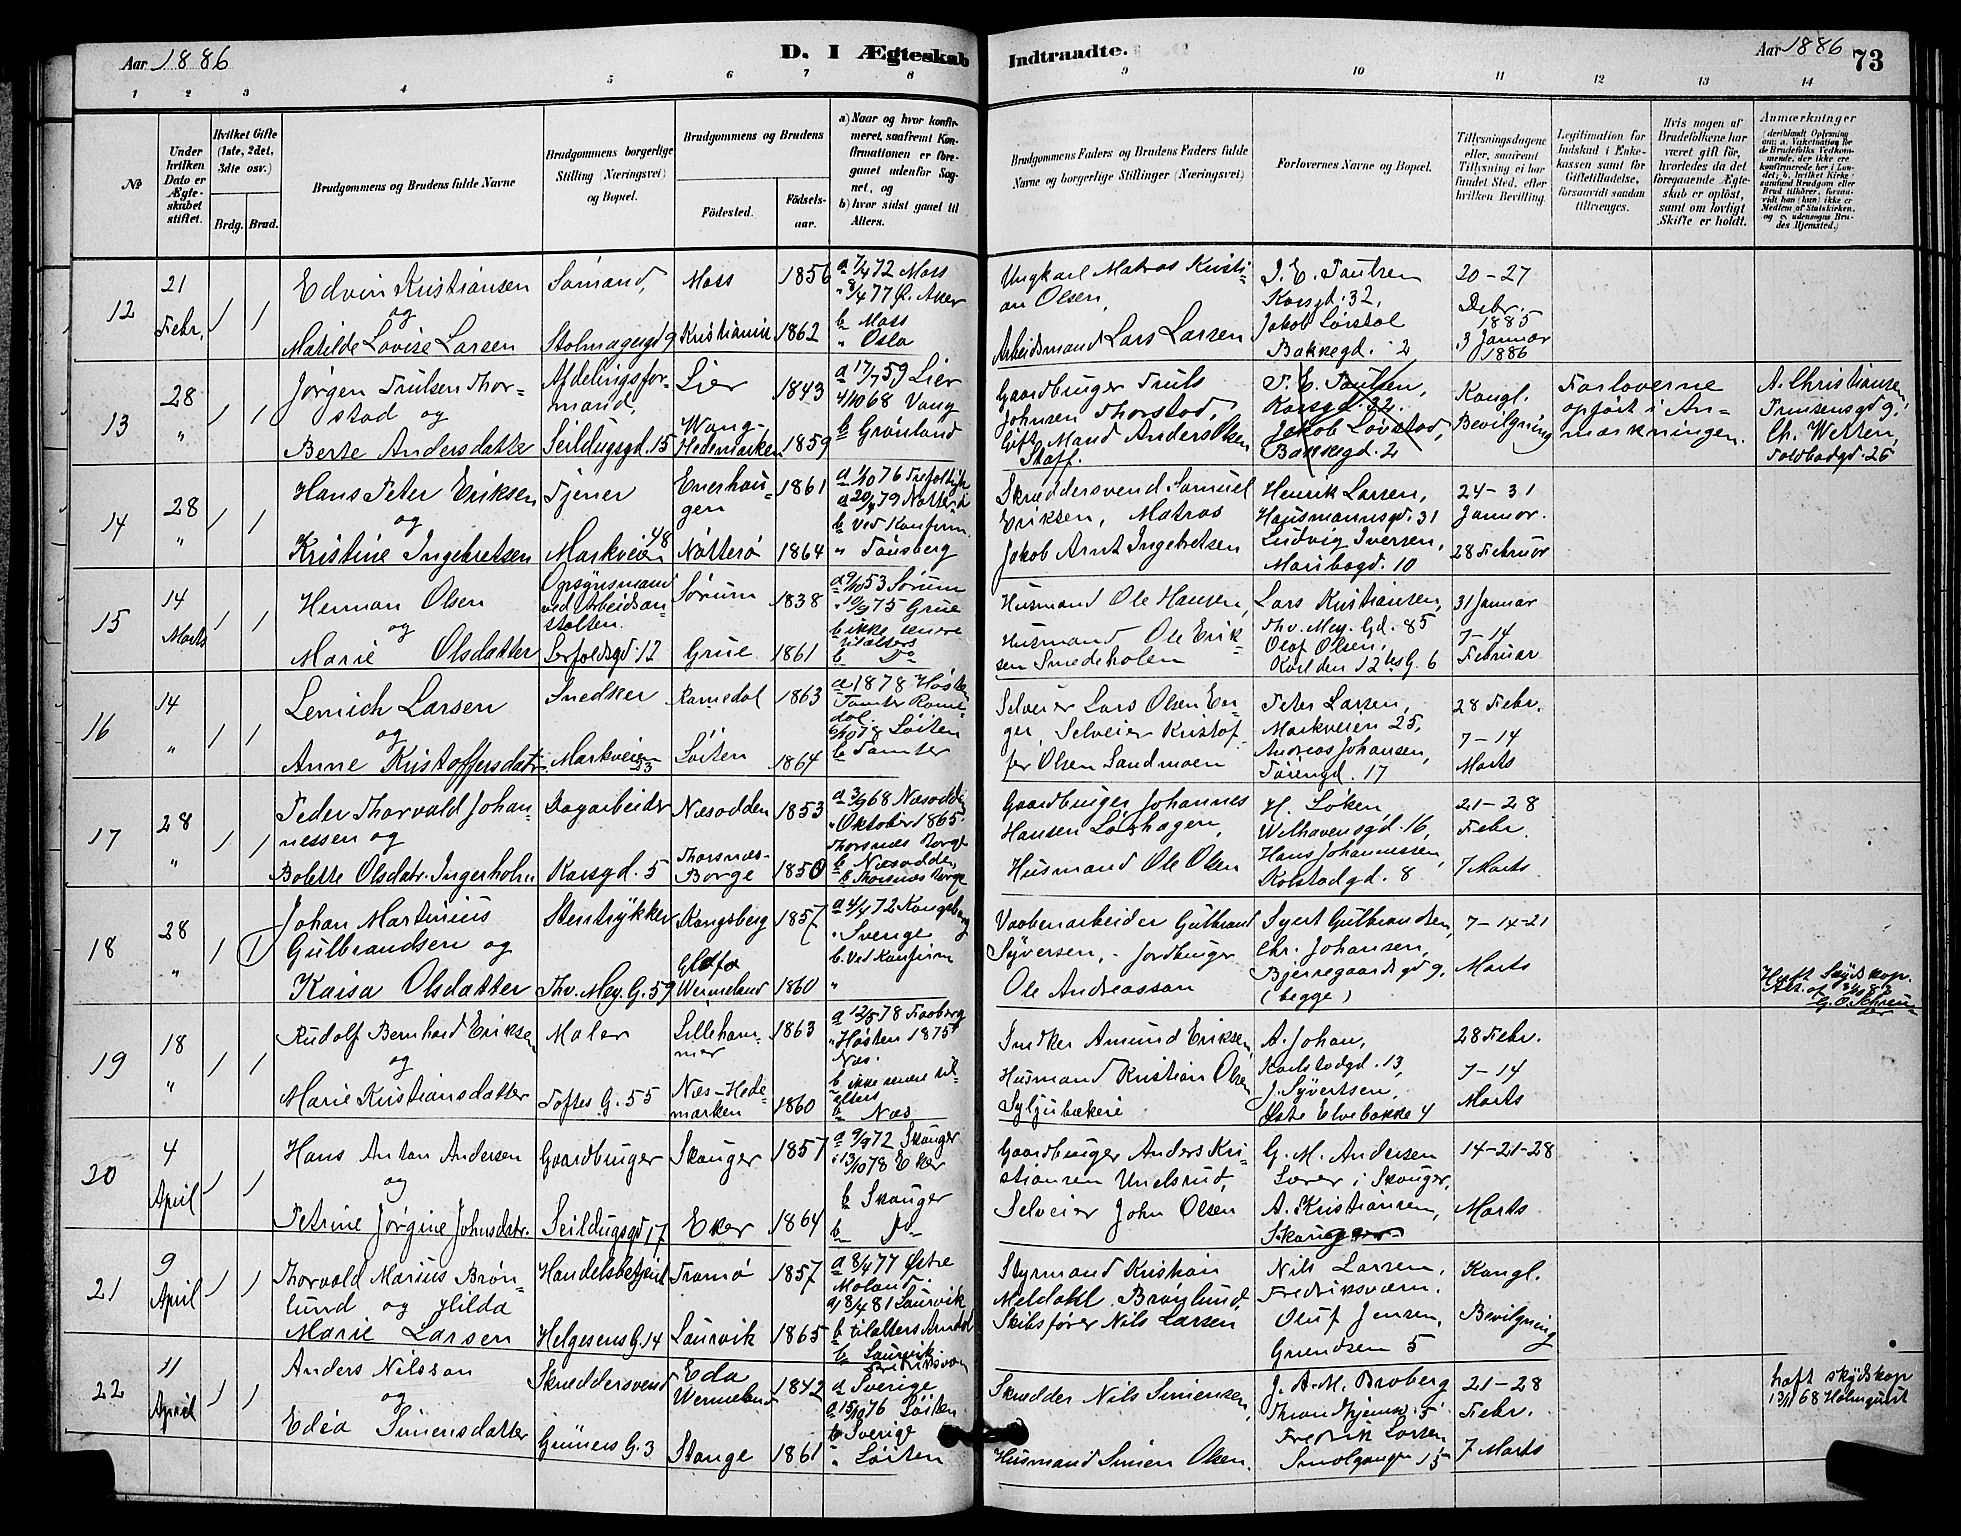 Aar 1886
D. I Ægteskab
Indtraadte.
Aar 1886
73
1 2 3 4 5 6 7 8 9 10 11 12 13 14
No
Under hvilken Dato er Ægteskabet stiftet.
Hvilket Gifte (1ste, 2det, 3die osv.)
Brdg. Brud.
Brudgommens og Brudens fulde Navne
Brudgommens borgerlige Stilling (Næringsvei) og Bopæl.
Brudgommens og Brudens
Fødested.
Fødselsaar.
a) Naar og hvor konfirmeret, saafremt Konfirmationen er foregaaet udenfor Sognet, og
b) hvor sidst gaaet til Alters.
Brudgommens Faders og Brudens Faders fulde Navne og borgerlige Stillinger (Næringsvei)
Forlovernes Navne og Bopæl.
Tillysningsdagene eller, saafremt Tillysning ei har fundet Sted, efter hvilken Bevilling.
Legitimation for Indskud i Enkekassen samt for Giftetilladelse, forsaavidt saadan tiltrænges.
Hvis nogen af Brudefolkene har været gift før, hvorledes da det foregaaende Ægteskab er opløst, samt om lovligt Skifte er holdt.
Anmærkninger
12
21
Febr.
1 1
Edvin Kristiansen
og
Matilde Lovise Larsen
Sømand,
Stolmagergd 9
Moss
Kristiania
1856
1862
a 7/4 72 Moss
" 8/4 77 Ø. Aker
b Moss
" Oslo
Ungkarl Matros Kristi-
an Olsen,
Arbeidsmand Lars Larsen
J. E. Paulsen
Korsgd. 32,
Jakob Lövstad
Bakkegd. 2
20-27
Debr.
1885
3 Januar
1886
13
28
"
1 1
Jørgen Trulsen Thor-
stad og
Berte Andersdatte
Afdelingsfor-
mand,
Seildugsgd. 15
Lier
Wang-
Hedemarken
1843
1859
a 17/7 59 Lier
4/10 68 Vang
b Grønland
Gaardbruger Truls
Johnsen Thorstad,
Gift Mand Anders Olsen
Staff.
J. E. Paulsen,
Korsgd. 32.
Jakob Lövstad,
Bakkegd. 2
Kongl.
Bevilgning
Forloverne
opført i An-
mærkningen.
A. Christiansen
Ch. Wetten,
Toldbodgd. 26
14
28
"
1 1
Hans Peter Eriksen
og
Kristine Ingebretsen
Tjener
Markveien 48
Enerhau-
gen
Nötterö
1861
1864
a 1/10 76 Trefoldigh
a 20/4 79 Nötterö
b Ved Konfirm.
" Tönsberg
Skræddersvend Samuel
Eriksen, Matros
Jakob Arnt Ingebretsen
Henrik Larsen,
Hausmannsgd. 31
Ludvig Iversen,
Maribogd. 10
24-31
Januar.
28 Februar
15
14
Marts
1 1
Herman Olsen
og
Marie Olsdatter
Opsynsmand
ved Arbeidsan-
stalten.
Sørum
Grue
1838
1861
a 9/10 53 Sørum
" 10/9 75 Grue
b ikke senere
til alters
b Do
Husmand Ole Hansen,
Husmand Ole Erik-
sen Smedeholen
Lars Kristiansen,
Thv. Mey. Gd. 85
Olaf Olsen,
Karl den 12tes G. 6
31 Januar
7-14
Februar
16
14
"
1 1
Lemich Larsen
og
Anne Kristoffersdatr.
Snedker
Markveien 23
Romedal
Löiten
1863
1864
a 1878 Høsten
Tomter Rome-
dal.
6/10 78 Löiten
b Tomter
Selveier Lars Olsen En-
ger, Selveier Kristof-
fer Olsen Sandmoen
Peter Larsen,
Markveien 25,
Andreas Johansen,
17
28 Febr.
7-14
Marts
17
28
"
1 1
Peder Thorvald Johan-
nessen og
Bolette Olsdatr. Ingerholm
Dagarbeider
Korsgd. 5
Næsodden
Thorsnæs-
Borge
1853
1850
a 3/9 68 Næsodden
" Oktober 1865
Thorsnæs Borge
b Næsodden,
b Thorsnæs Borge
Gaardbruger Johannes
Hansen Lørhagen,
Husmand Ole Olsen
H. Løken,
Welhavensgd. 16,
Hans Johannessen,
Kolstadgd. 8
21-28
Febr.
7 Marts
18
28
"
1 1
Johan Martinius
Gulbrandsen og
Kaisa Olsdatter
Stentrykker
Thv. Mey. G. 59
Kongsberg
Glafva
Wermeland
1857
1860
a 4/4 72 Kongsberg
" Sverige
b. Ved Konfirm
"
Vaabenarbeider Gulbrand
Syversen, - Jordbruger
Ole Andreasson
Syert Gulbrandsen,
Chr. Johansen,
Bjerregaardsgd 9,
(begge)
7-14-21
Marts
19
18
"
1 1
Rudolf Bernhard Eriksen
og
Marie Kristiansdatter
Maler
Toftes G. 55
Lilleham-
mer
Næs-Hede-
marken
1863
1860
a 12/5 78 Faaberg
" Høsten 1875
Næs.
b ikke senere til-
alters
b Næs
Snedker Amund Eriksen,
Husmand Kristian Olsen
Syljubækeie
A. Johan,
Karlstadgd. 13,
J. Syvertsen,
Østre Elvebakke 4
28 Febr.
7-14
Marts
20
4
April
1 1
Hans Anton Andersen
og
Petrine Jørgine Johnsdatr.
Gaardbruger
Seildugsgd 17
Skauger
Eker
1857
1864
a 9/9 72 Skauger
" 13/10 78 Eker
b Skauger
b Do
Gaardbruger Anders Kri-
stiansen Undsrud,
Selveier John Olsen
G. M. Andersen
Lærer i Skauger,
A. Kristiansen,
Skauger
14-21-28
Marts
21
9
April
1 1
Thorvald Marius Brøn-
lund og Hilda
Marie Larsen
Handelsbetjent
Helgesens G. 14
Tromø
Laurvik
1857
1865
a 8/4 77 Østre
Moland.
a 18/4 81 Laurvik
b tilalters Arendal
b Laurvik
Fredriksværn
Styrmand Kristian
Meldahl Brønlund,
Skibsfører Nils Larsen
Nils Larsen,
Fredriksværn.
Oluf Jensen,
Grundsen 5
Kongl.
Bevilgning
22
11
April
1 1
Anders Nilsson
og
Edea Simensdatter
Skræddersvend
Grüners G. 3
Eda
Wermeland
Stange
1842
1861
a Sverige
a 15/10 76 Löiten
b Sverige
" Löiten
Skrædder Nils Simensen,
Husmand Simen Olsen.
J. A. M. Broberg
Fredrik Larsen
15
21-28
Febr.
7 Marts
haft skydskop
13/11 68 Holmquist